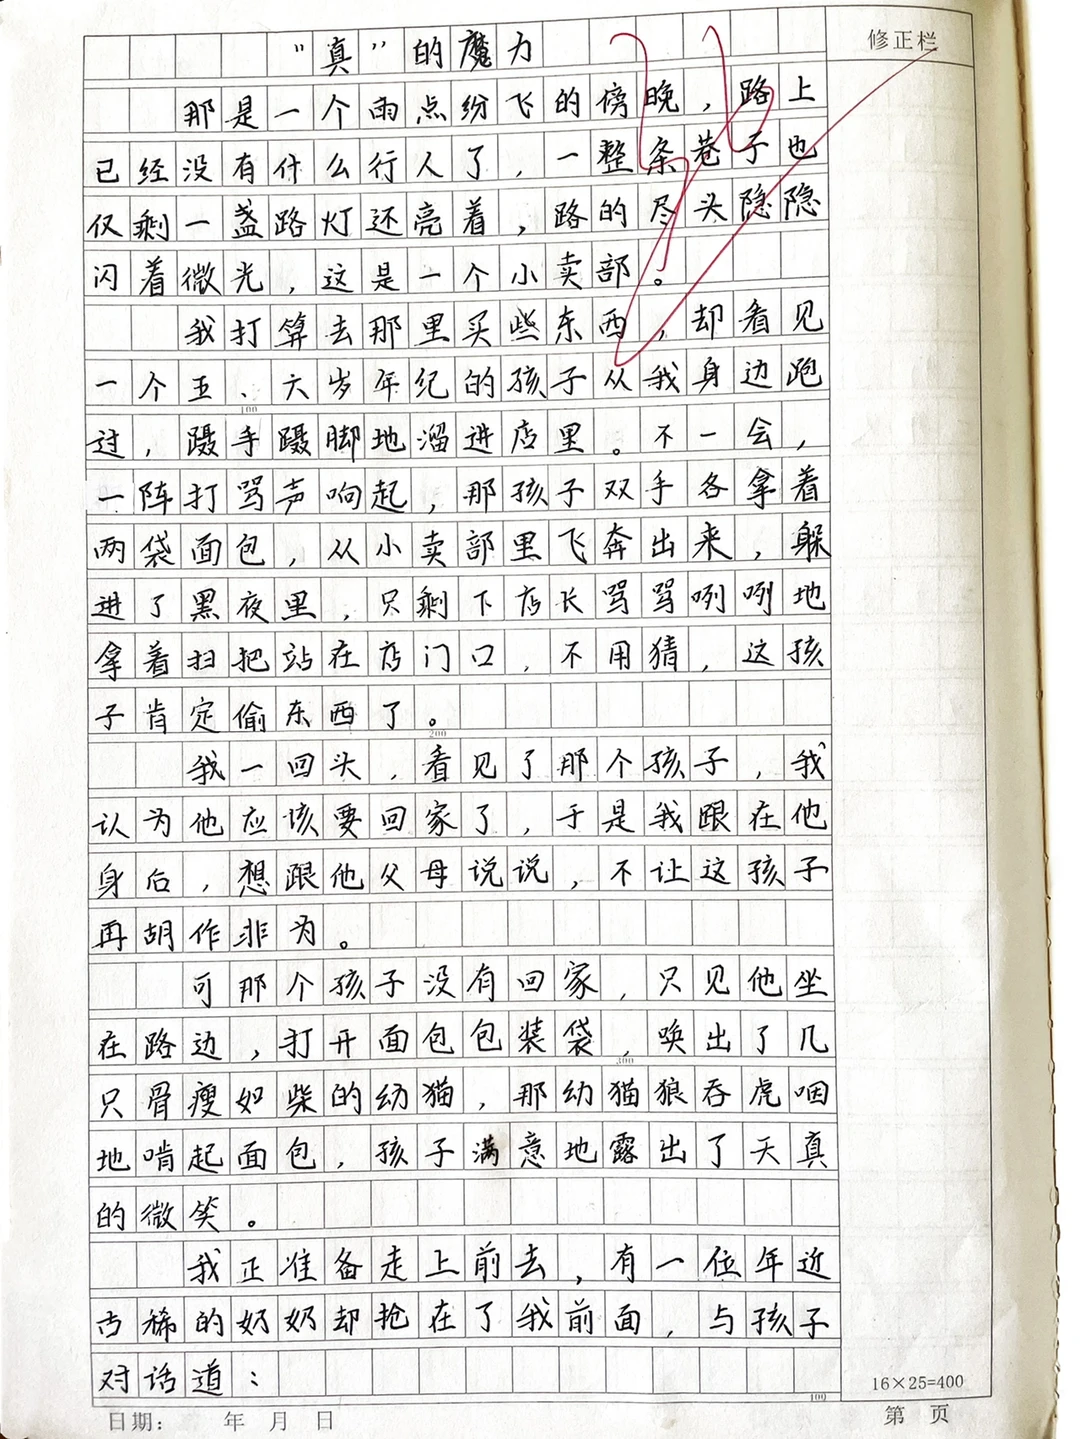 修正栏
“真”的魔力
那是一个雨点纷飞的傍晚，路上
已经没有什么行人了，一整条巷子也
仅剩一盏路灯还亮着，路的尽头隐隐
闪着微光，这是一个小卖部。
我打算去那里买些东西，却看见
一个五、六岁年纪的孩子从我身边跑
100
过，蹑手蹑脚地溜进店里。不一会，
一阵打骂声响起，那孩子双手各拿着
两袋面包，从小卖部里飞奔出来，躲
进了黑夜里，只剩下店长骂骂咧咧地
拿着扫把站在店门口，不用猜，这孩
子肯定偷东西了。
200
我一回头，看见了那个孩子，我
认为他应该要回家了，于是我跟在他
身后，想跟他父母说说，不让这孩子
再胡作非为。
可那个孩子没有回家，只见他坐
在路边，打开面包包装袋，唤出了几
300
只骨瘦如柴的幼猫，那幼猫狼吞虎咽
地啃起面包，孩子满意地露出了天真
的微笑。
我正准备走上前去，有一位年近
古稀的奶奶却抢在了我前面，与孩子
对话道：
16×25=400
日期： 年 月 日
第 页